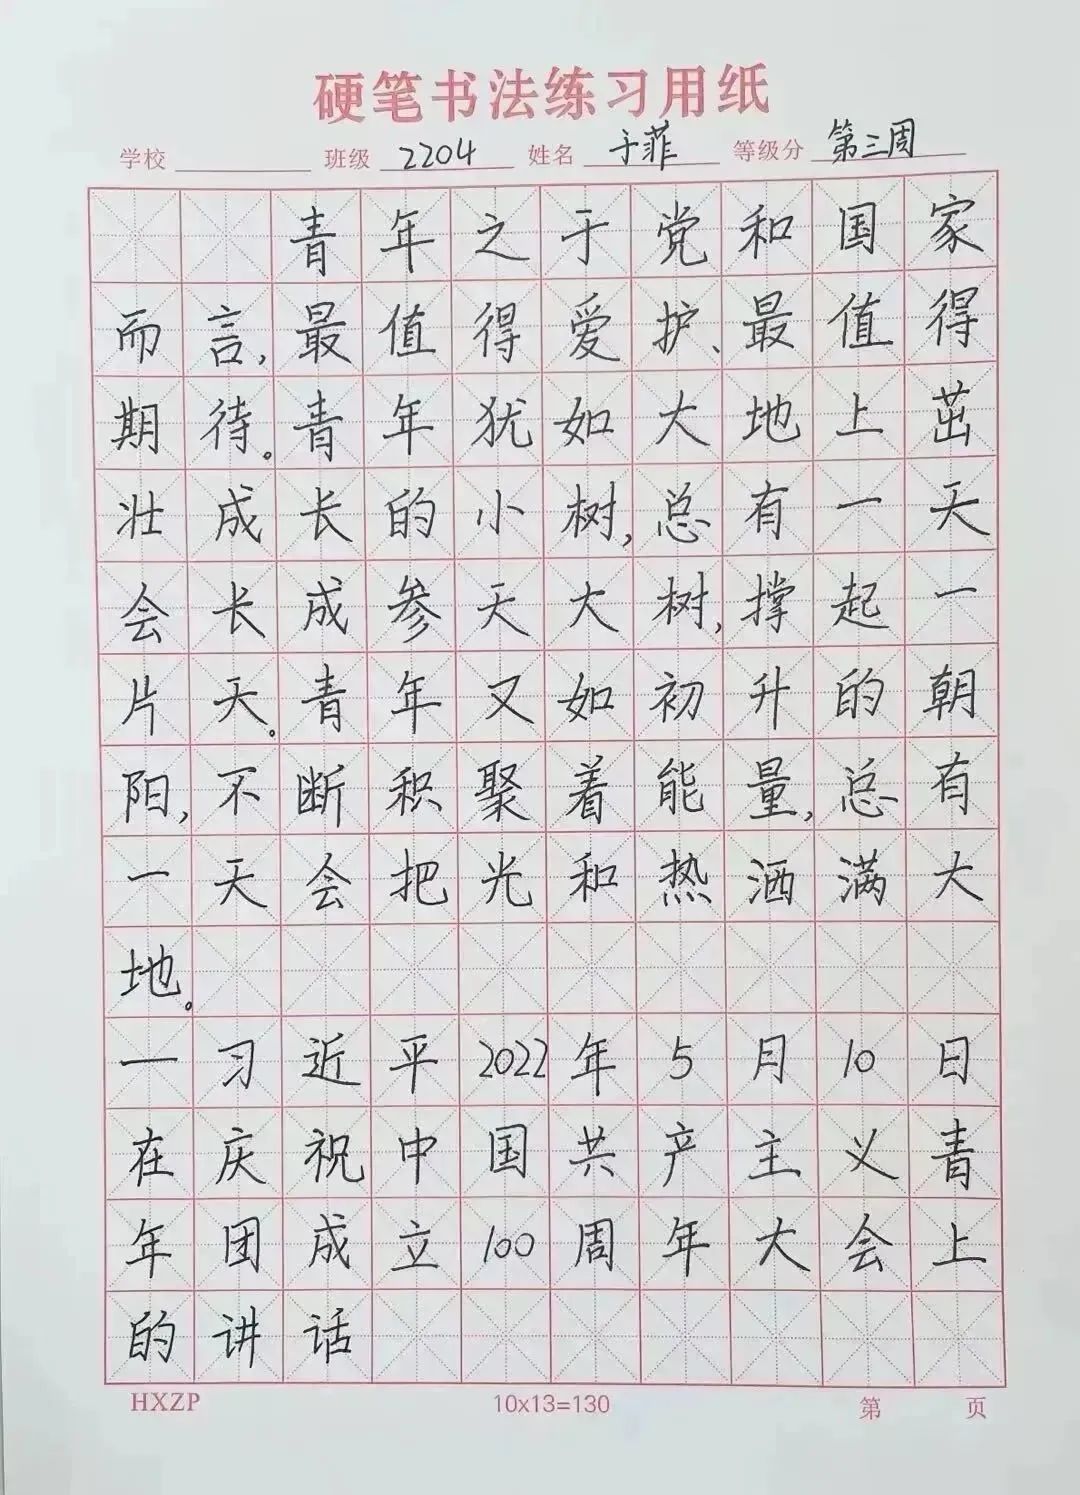 硬笔书法练习用纸
学校 班级 2204 姓名 于菲 等级分 第三周
青年之于党和国家
而言,最值得爱护、最值得
期待。青年犹如大地上茁
壮成长的小树,总有一天
会长成参天大树,撑起一
片天。青年又如初升的朝
阳,不断积聚着能量,总有
一天会把光和热洒满大
地。
—习近平2022年5月10日
在庆祝中国共产主义青
年团成立100周年大会上
的讲话
HXZP 10x13=130 第 页